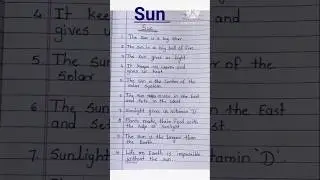 Sun
Sun
1. The Sun is a big star.
2. The Sun is a big ball of fire.
3. The sun gives us light
4. It keeps us warm and
gives us heat
5. The sun is the center of the
solar system
6. The sun rises in the East
and sets in the west
7. Sunlight gives us vitamin 'D'
8. Plants make their food with
the help of sunlight
9. The sun is the larger than
the Earth.
10. Life on Earth is impossible
without the sun.
4. It keep
gives u
5. The sun
Solar
6. The Sun
and Se
7. Sunlight
of the
the East
tamin 'D'.